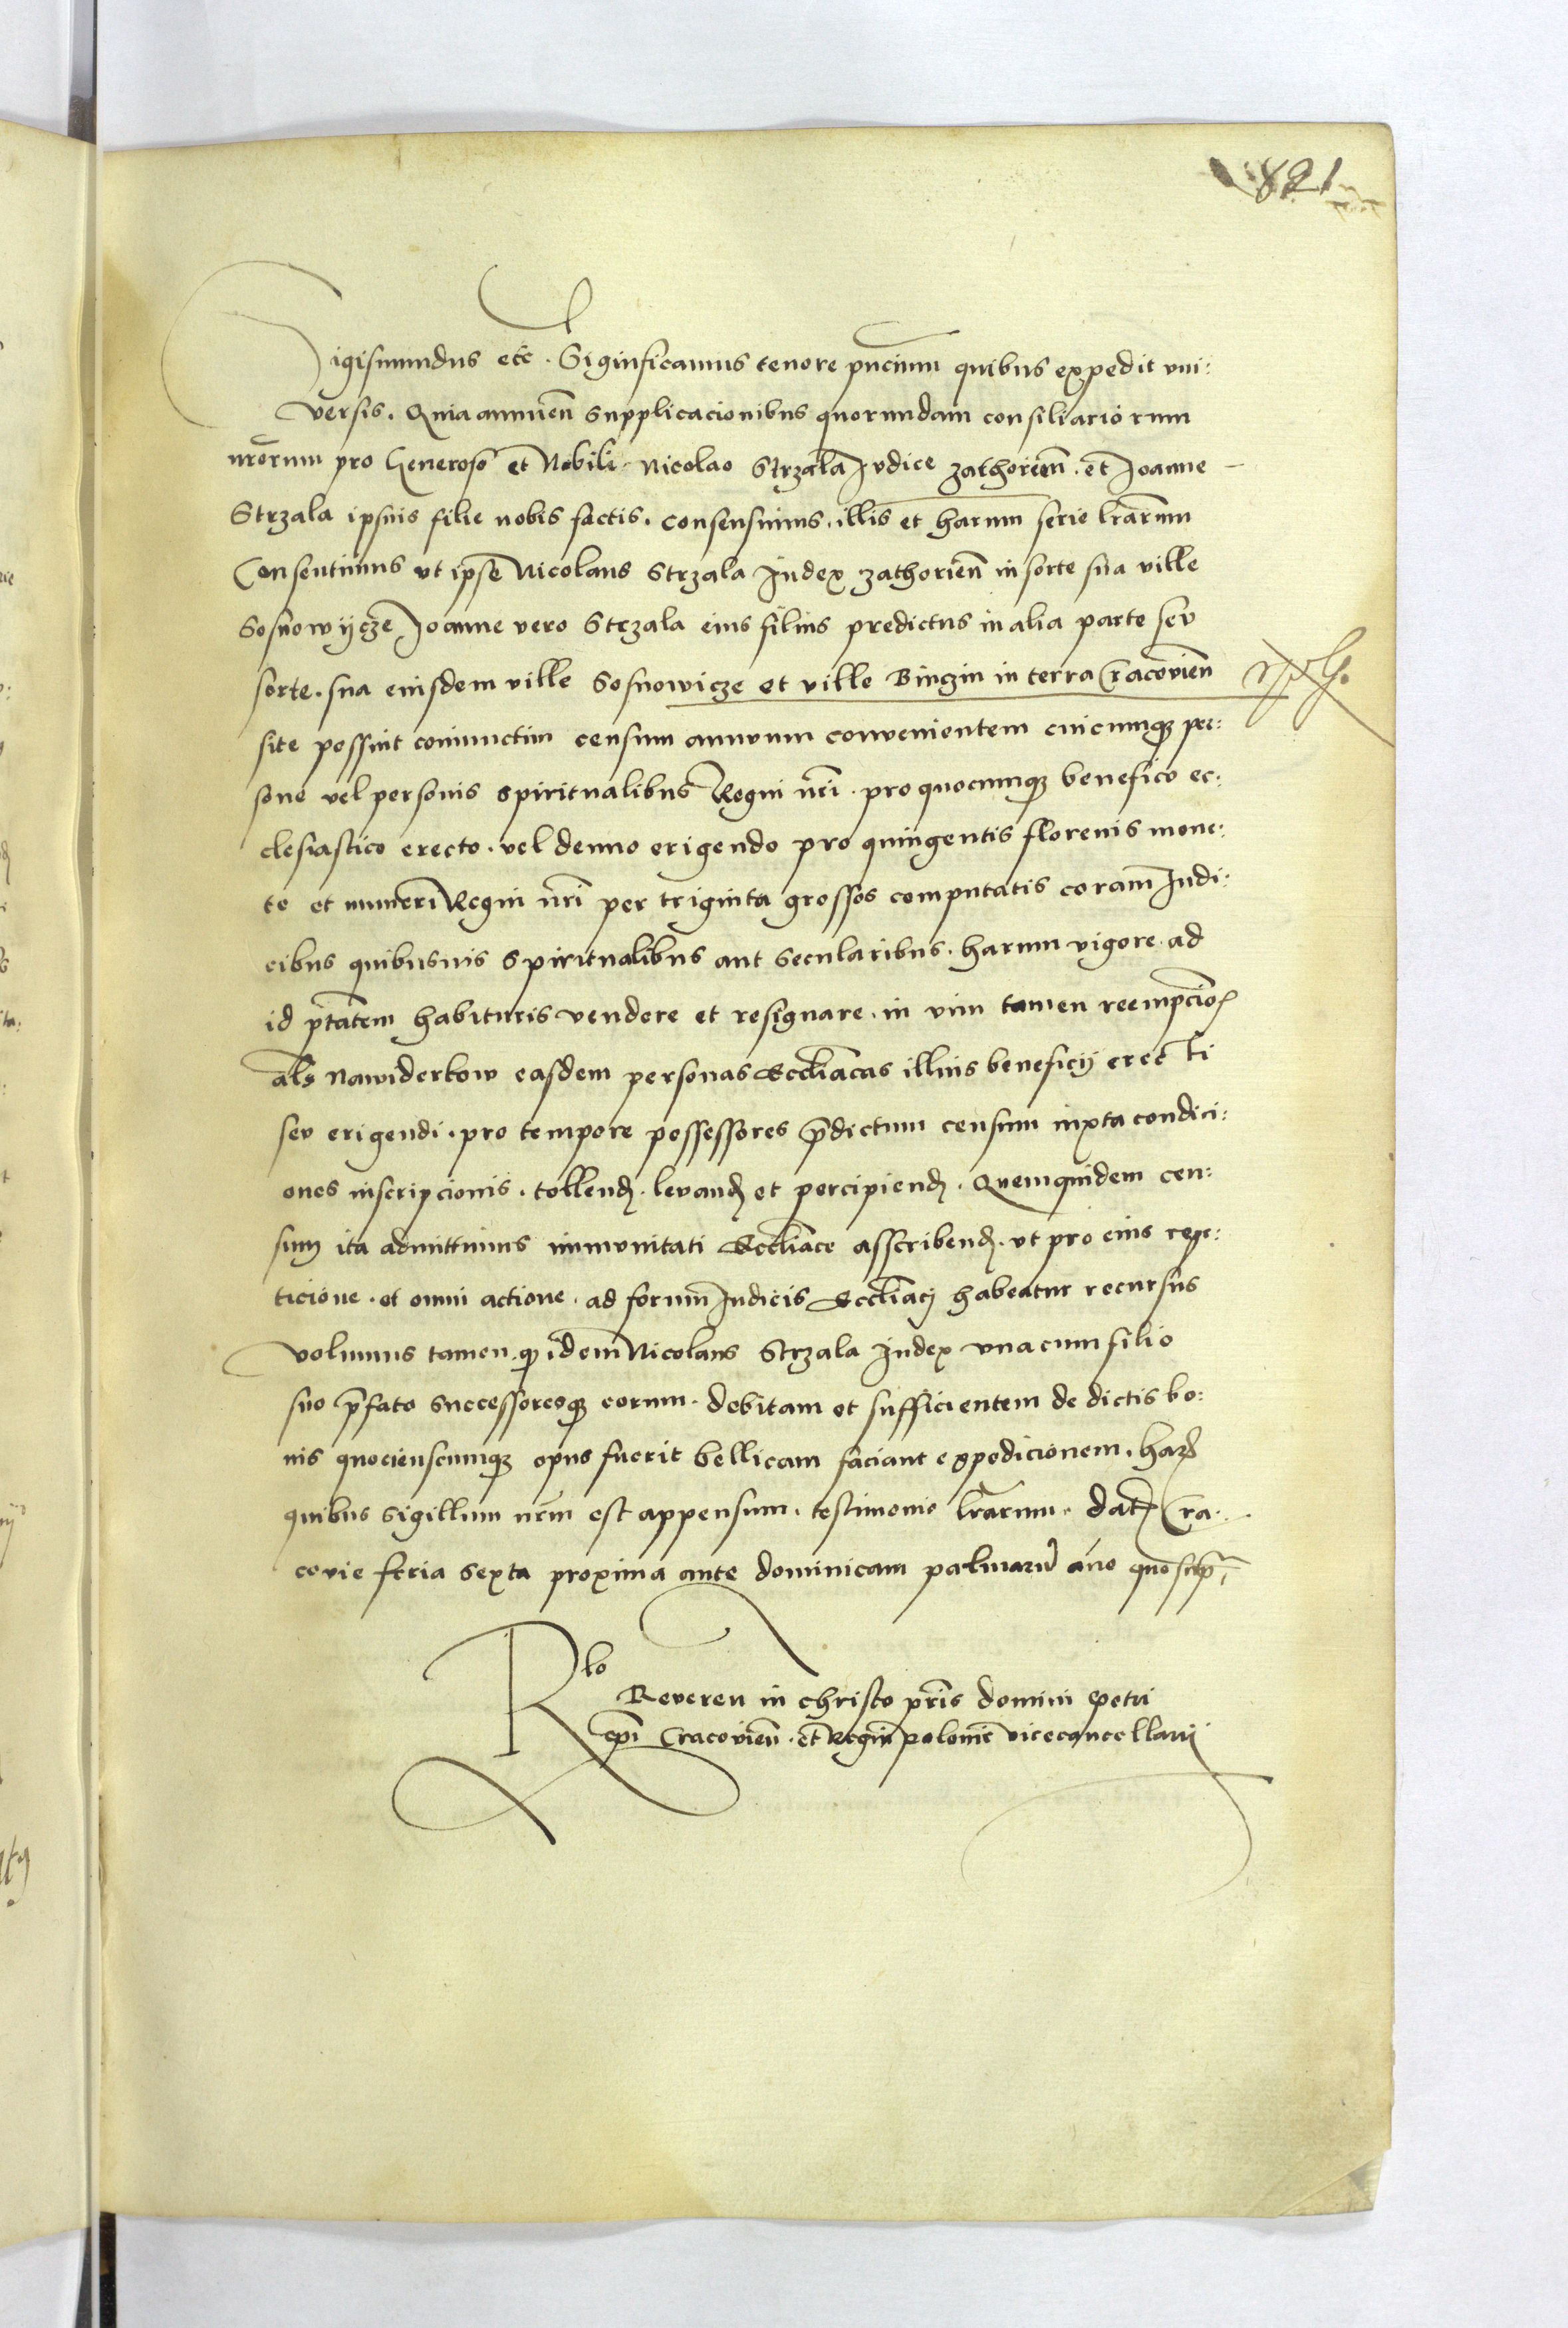 821
Sigismundus etc. Significamus tenore pñcium quibus expedit vni:
versis. Quia annuen̄ supplicacionibus quorundam consiliariorum
nr̄orum pro Generoso et Nobili Nicolao Strzala Iudice Zathorien̄. et Ioanne
Strzala ipsius filio nobis factis. consensimus illis et harum serie lr̄arum
Consentimus vt ipse Nicolaus Strzala Iudex zathorien̄ in sorte sua ville
Sosnowycze Ioanne vero Strzala eius filius predictus in alia parte sev
sorte sua eiusdem ville Sosnowicze et ville Binczin in terra Cracovien̄
site possint coniunctim censum annuum convenientem cuicumqꝫ per:
sone vel personis spiritualibus Regni nr̄i pro quocumqꝫ beneficio ec:
clesiastico erecto. vel denuo erigendo pro quingentis florenis mone:
te et numeri Regni nr̄i per triginta grossos computatis coram Iudi:
cibus quibusuis spiritualibus aut secularibus. harum vigore ad
id ptātem habituris vendere et resignare. in vim tamen reempcioꝭ
al̄s nawiderkow easdem personas Eccl̄iacas illius beneficij erecti
sev erigendi. pro tempore possessores p̄dictum censum iuxta condici:
ones inscripcionis. tollend. levand et percipiend. Quemquidem cen:
sum ita admittimus immunitati Eccl̄iace asscribend. vt pro eius repe:
ticione. et omni actione. ad forum Iudicis Eccl̄iaci habeatur recursus
Volumus tamen. qꝫ idem Nicolaus Strzala Iudex vnacum filio
suo p̄fato Successoresqꝫ eorum. debitam et sufficientem de dictis bo:
nis quocienscumqꝫ opus fuerit bellicam faciant expedicionem. harꝫ
quibus sigillum nr̄m est appensum. testimonio lr̄arum. Datꝫ Cra:
covie feria sexta proxima ante dominicam palmarū ano quo sup̄
Rlo
Reveren in christo pr̄is domini Petri
ep̄i Cracovien̄. et Regni polonie vicecancellarij